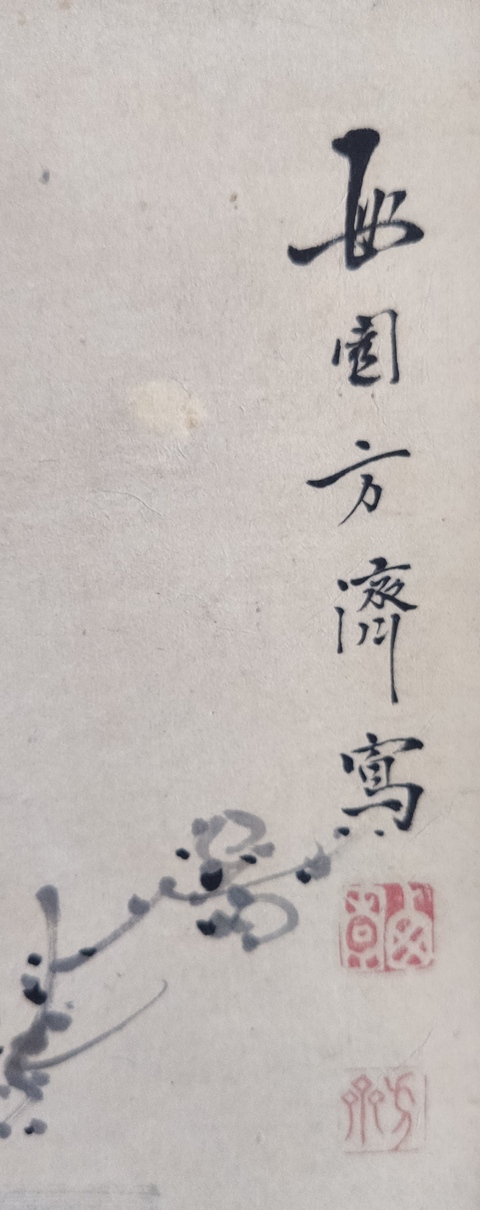 西園方濟寫